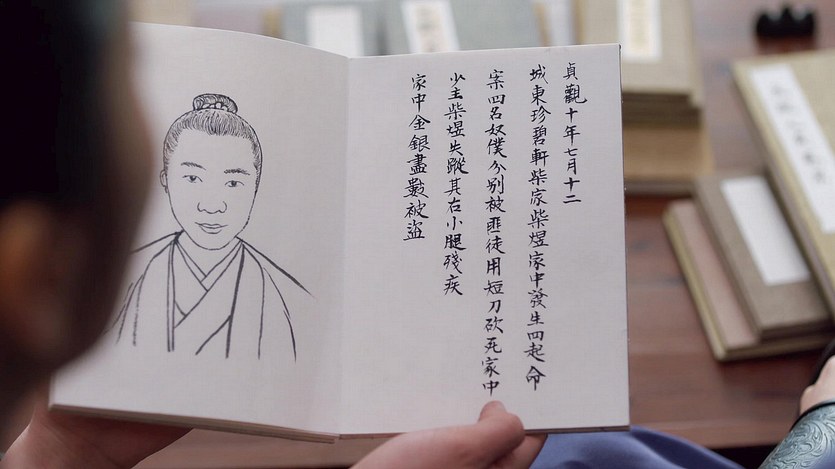 貞觀十年七月十二
城東珍碧軒柴家柴煜家中發生四起命
案四名奴僕分別被匪徒用短刀砍死家中
少主柴煜失蹤其右小腿殘疾
家中金銀盡數被盜